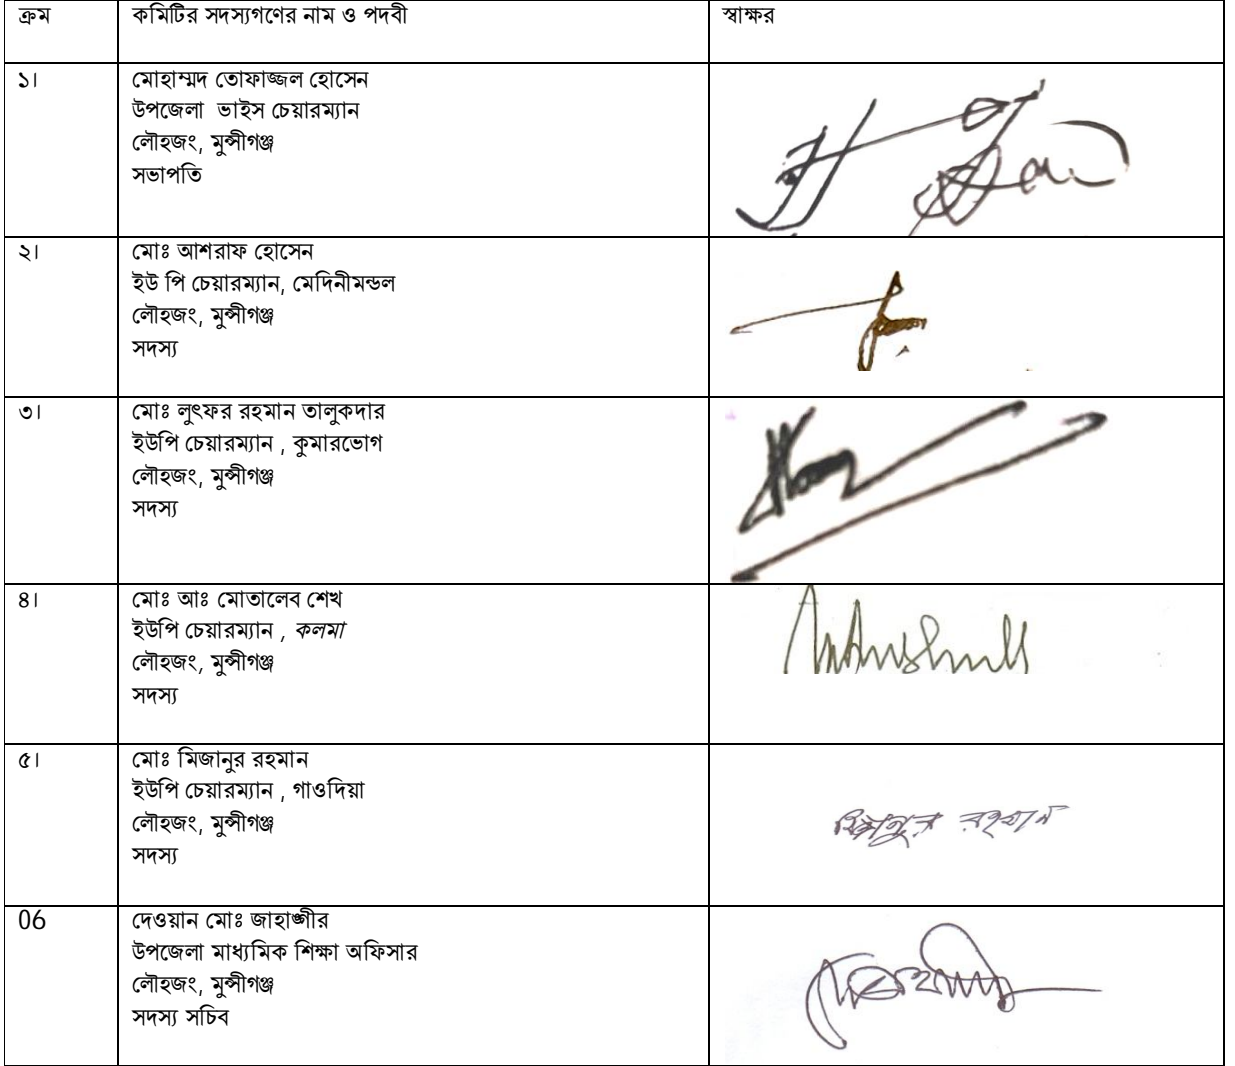 ক্রম কমিটির সদস্যগণের নাম ও পদবী স্বাক্ষর
১। মোহাম্মদ তোফাজ্জল হোসেন
উপজেলা ভাইস চেয়ারম্যান
লৌহজং, মুন্সীগঞ্জ
সভাপতি
২। মোঃ আশরাফ হোসেন
ইউ পি চেয়ারম্যান, মেদিনীমন্ডল
লৌহজং, মুন্সীগঞ্জ
সদস্য
৩। মোঃ লুৎফর রহমান তালুকদার
ইউপি চেয়ারম্যান , কুমারভোগ
লৌহজং, মুন্সীগঞ্জ
সদস্য
৪। মোঃ আঃ মোতালেব শেখ
ইউপি চেয়ারম্যান , কলমা
লৌহজং, মুন্সীগঞ্জ
সদস্য
৫। মোঃ মিজানুর রহমান
ইউপি চেয়ারম্যান , গাওদিয়া
লৌহজং, মুন্সীগঞ্জ
মিজানুর রহমান
সদস্য
06 দেওয়ান মোঃ জাহাঙ্গীর
উপজেলা মাধ্যমিক শিক্ষা অফিসার
লৌহজং, মুন্সীগঞ্জ
সদস্য সচিব